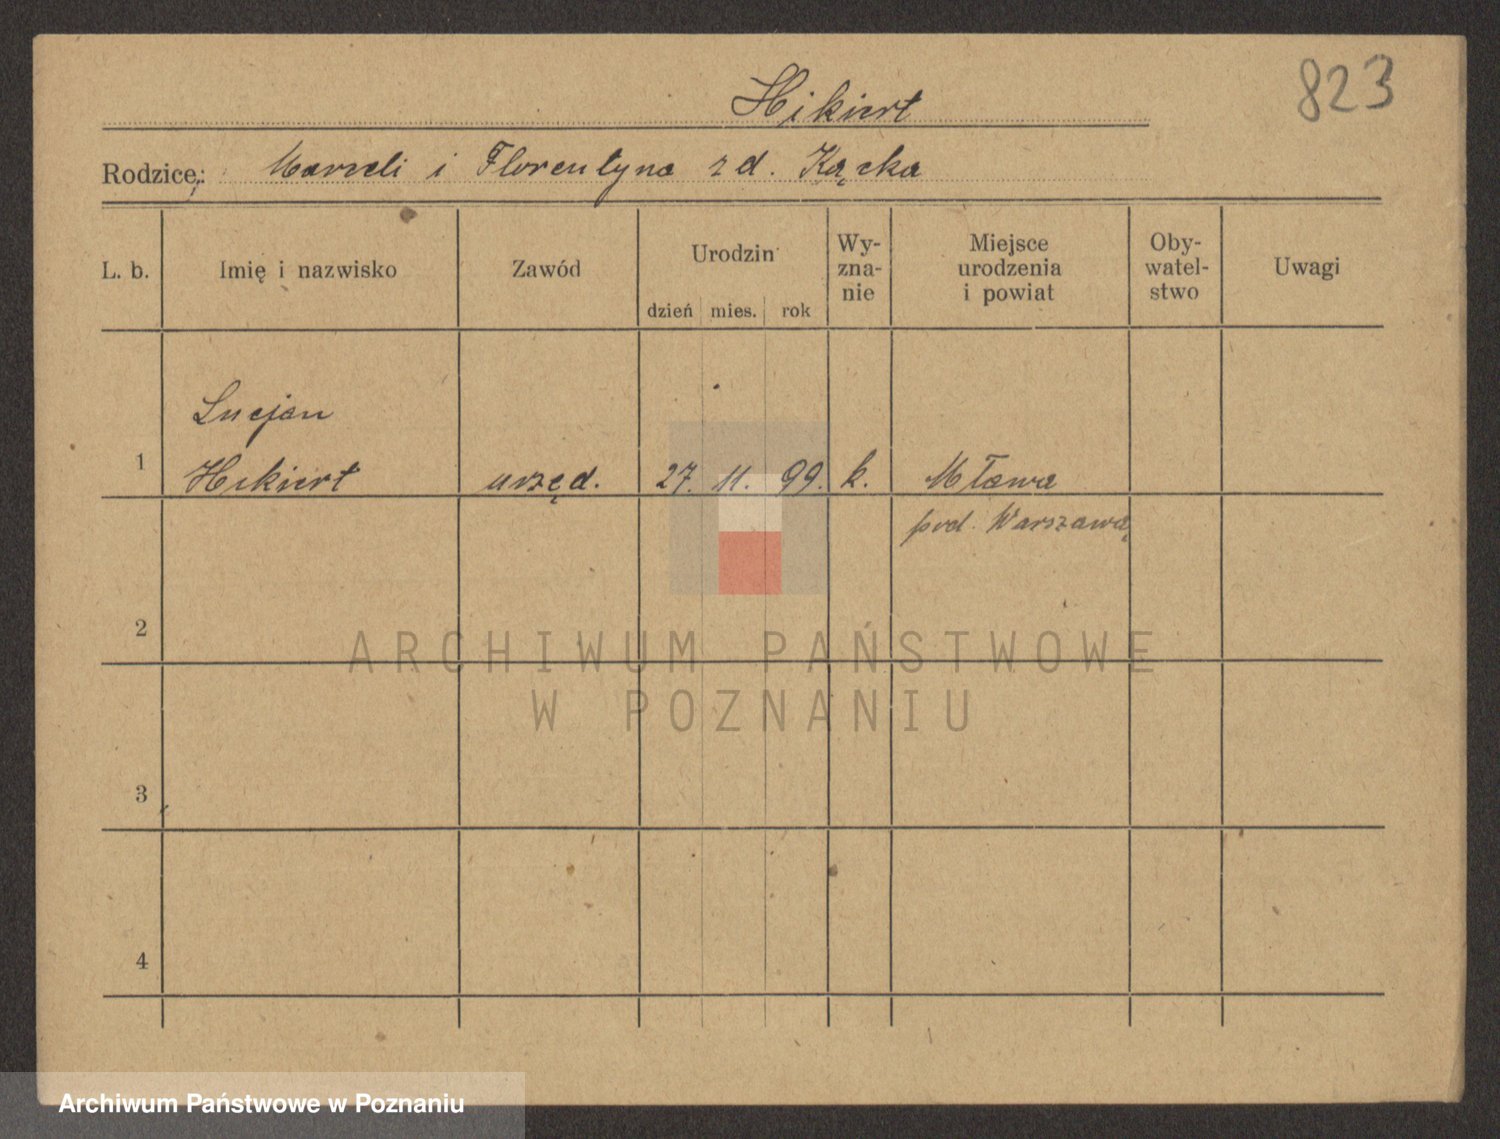 Hikiert
823
Rodzice: Marceli i Florentyna z d. Kącka
L. b.
Imię i nazwisko
Zawód
Urodzin
dzień mies. rok
Wy-
zna-
nie
Miejsce
urodzenia
i powiat
Oby-
watel-
stwo
Uwagi
Lucjan
1 Hikiert urzęd. 27. 11. 99. k. Mława
pod. Warszawą
2
ARCHIWUM PAŃSTWOWE
W POZNANIU
3
4
Archiwum Państwowe w Poznaniu